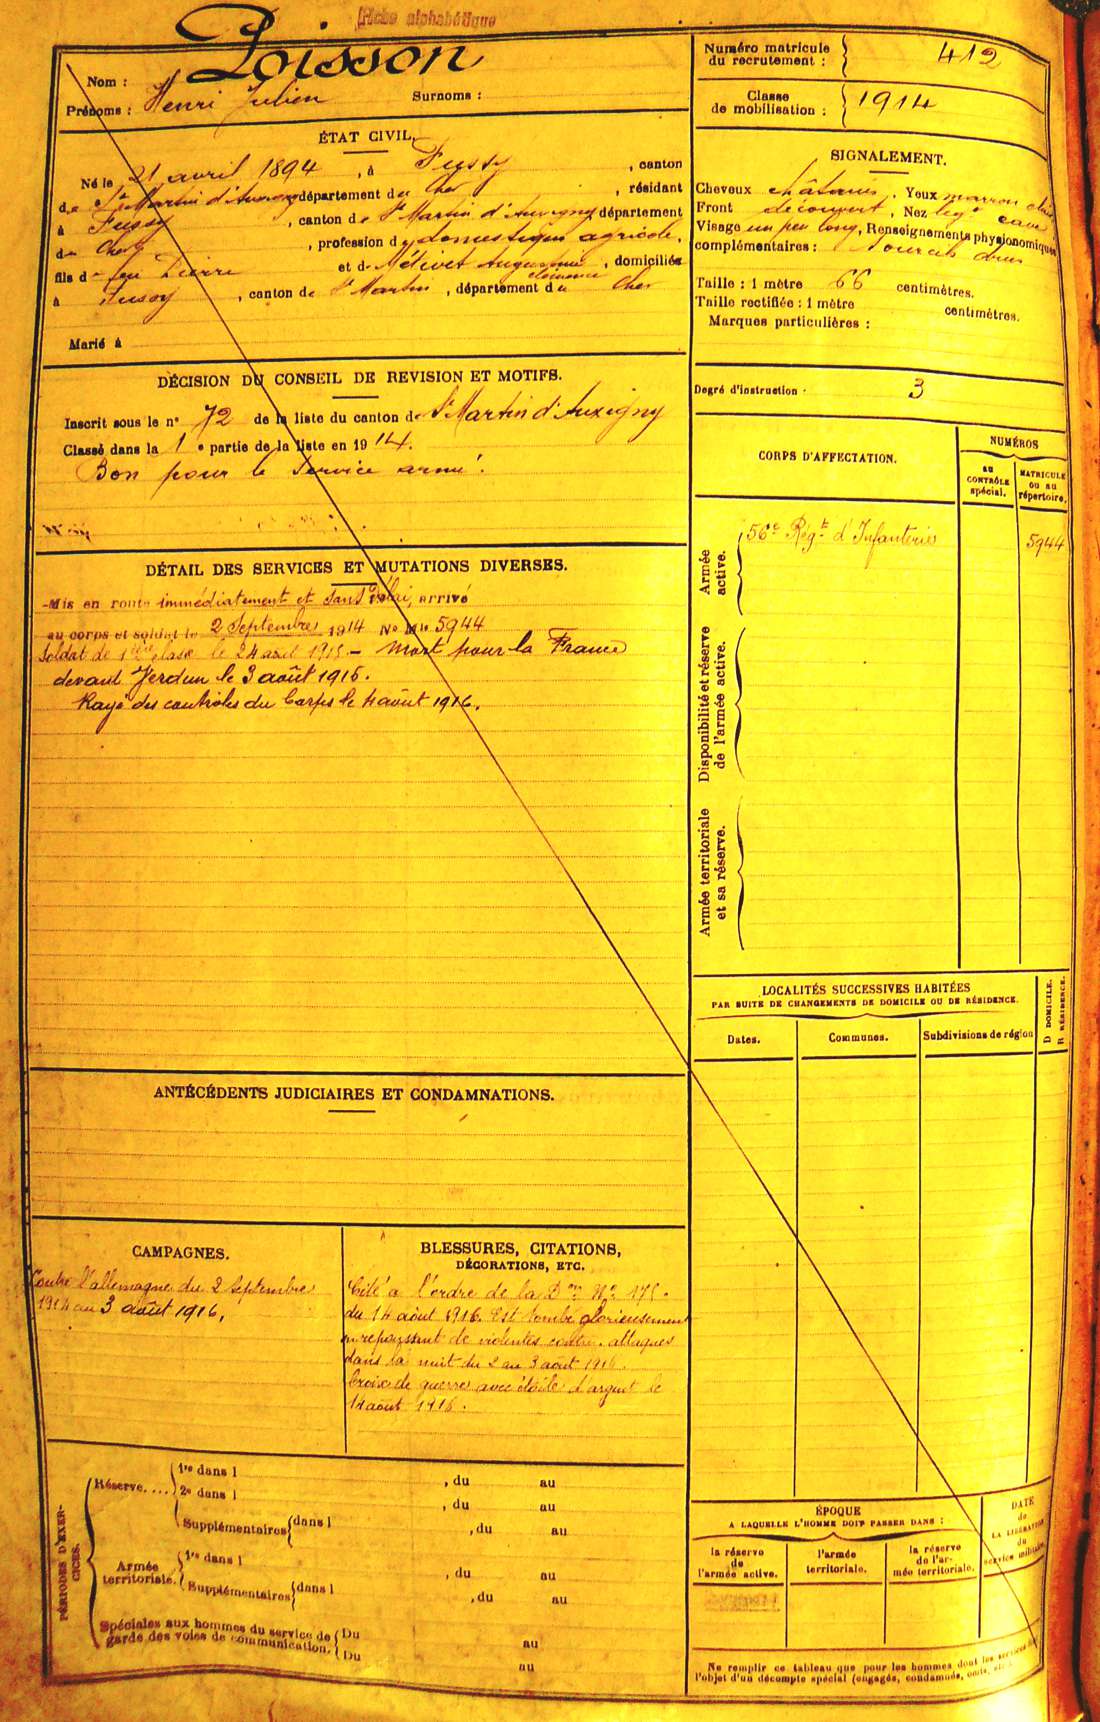 Fiche alphabétique
Nom : Poisson
Prénoms : Henri Julien Surnoms :
Numéro matricule du recrutement : 412
Classe de mobilisation : 1914
ÉTAT CIVIL.
Né le 21 avril 1894, à Fussy, canton
de St Martin d'Auxigny, département du Cher, résidant
à Fussy, canton de St Martin d'Auxigny, département
du Cher, profession de domestique agricole,
fils de feu Pierre et de Métivet Augustine Clémence, domiciliés
à Fussy, canton de St Martin, département du Cher
Marié à
SIGNALEMENT.
Cheveux châtains. Yeux marron clair
Front découvert, Nez leg^t cave
Visage un peu long, Renseignements physionomiques
complémentaires : Sourcils drus
Taille : 1 mètre 66 centimètres.
Taille rectifiée : 1 mètre centimètres.
Marques particulières :
Degré d'instruction : 3
DÉCISION DU CONSEIL DE REVISION ET MOTIFS.
Inscrit sous le n° 72 de la liste du canton de St Martin d'Auxigny
Classé dans la 1e partie de la liste en 1914.
Bon pour le Service armé.
DÉTAIL DES SERVICES ET MUTATIONS DIVERSES.
Mis en route immédiatement et sans délai, arrivé
au corps et soldat le 2 Septembre 1914 No Mle 5944
Soldat de 1ère classe le 24 août 1915 - Mort pour la France
devant Verdun le 3 août 1916.
Rayé des contrôles du Corps le 4 août 1916.
CORPS D'AFFECTATION.
NUMÉROS
au CONTRÔLE spécial.
MATRICULE ou au répertoire.
Armée active.
56e Régt d'Infanterie 5944
Disponibilité et réserve de l'armée active.
Armée territoriale et sa réserve.
LOCALITÉS SUCCESSIVES HABITÉES
PAR SUITE DE CHANGEMENTS DE DOMICILE OU DE RÉSIDENCE.
Dates.
Communes.
Subdivisions de région
D DOMICILE.
R RÉSIDENCE.
ANTÉCÉDENTS JUDICIAIRES ET CONDAMNATIONS.
CAMPAGNES.
Contre l'allemagne du 2 Septembre
1914 au 3 août 1916.
BLESSURES, CITATIONS,
DÉCORATIONS, ETC.
Cité à l'ordre de la Don No 175.
du 14 août 1916. Est tombé glorieusement
en repoussant de violentes contre-attaques
dans la nuit du 2 au 3 août 1916.
Croix de guerre avec étoile d'argent le
14 août 1916.
PÉRIODES D'EXERCICES.
Réserve....
1re dans l , du au
2e dans l , du au
Supplémentaires dans l , du au
Armée territoriale.
1re dans l , du au
Supplémentaires dans l , du au
Spéciales aux hommes du service de garde des voies de communication.
Du au
Du au
ÉPOQUE
A LAQUELLE L'HOMME DOIT PASSER DANS :
la réserve de l'armée active.
l'armée territoriale.
la réserve de l'armée territoriale.
DATE de LA LIBÉRATION du service militaire.
Ne remplir ce tableau que pour les hommes dont les services
l'objet d'un décompte spécial (engagés, condamnés, omis, etc.)